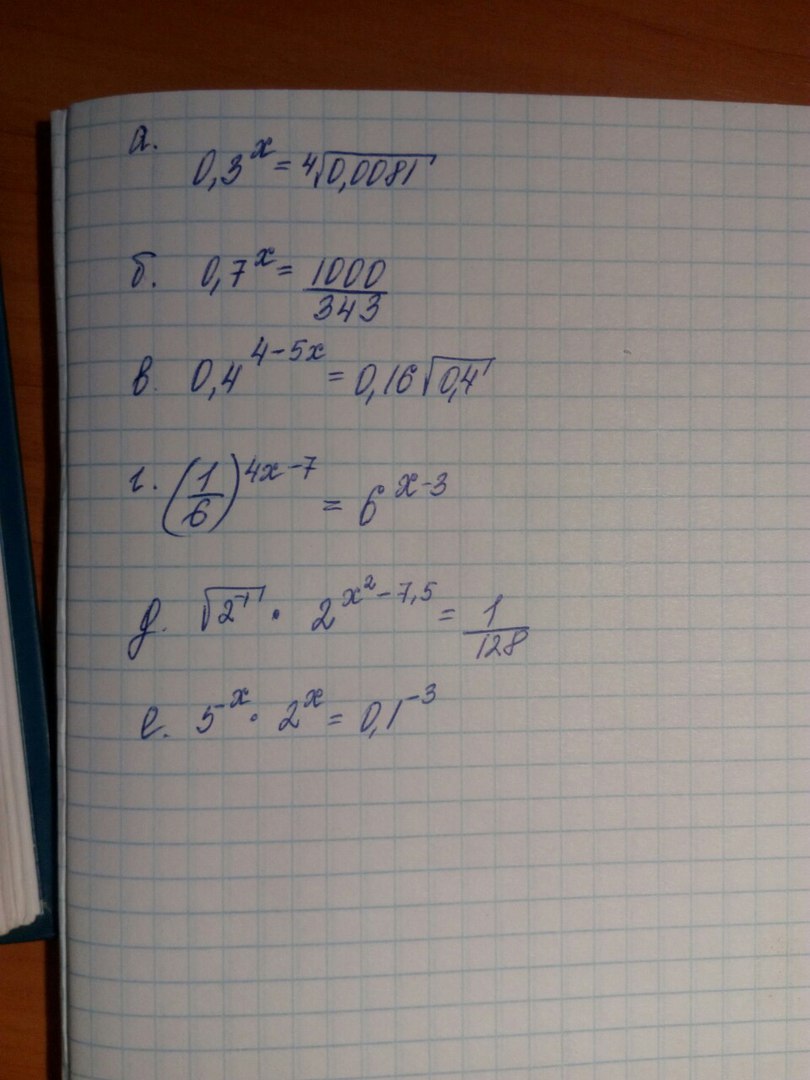 а.
0,3^x = ⁴√0,0081
б. 0,7^x = 1000/343
в. 0,4^(4-5x) = 0,16√0,4
г. (1/6)^(4x-7) = 6^(x-3)
д. √2^(-1) · 2^(x²-7,5) = 1/128
е. 5^(-x) · 2^x = 0,1^(-3)